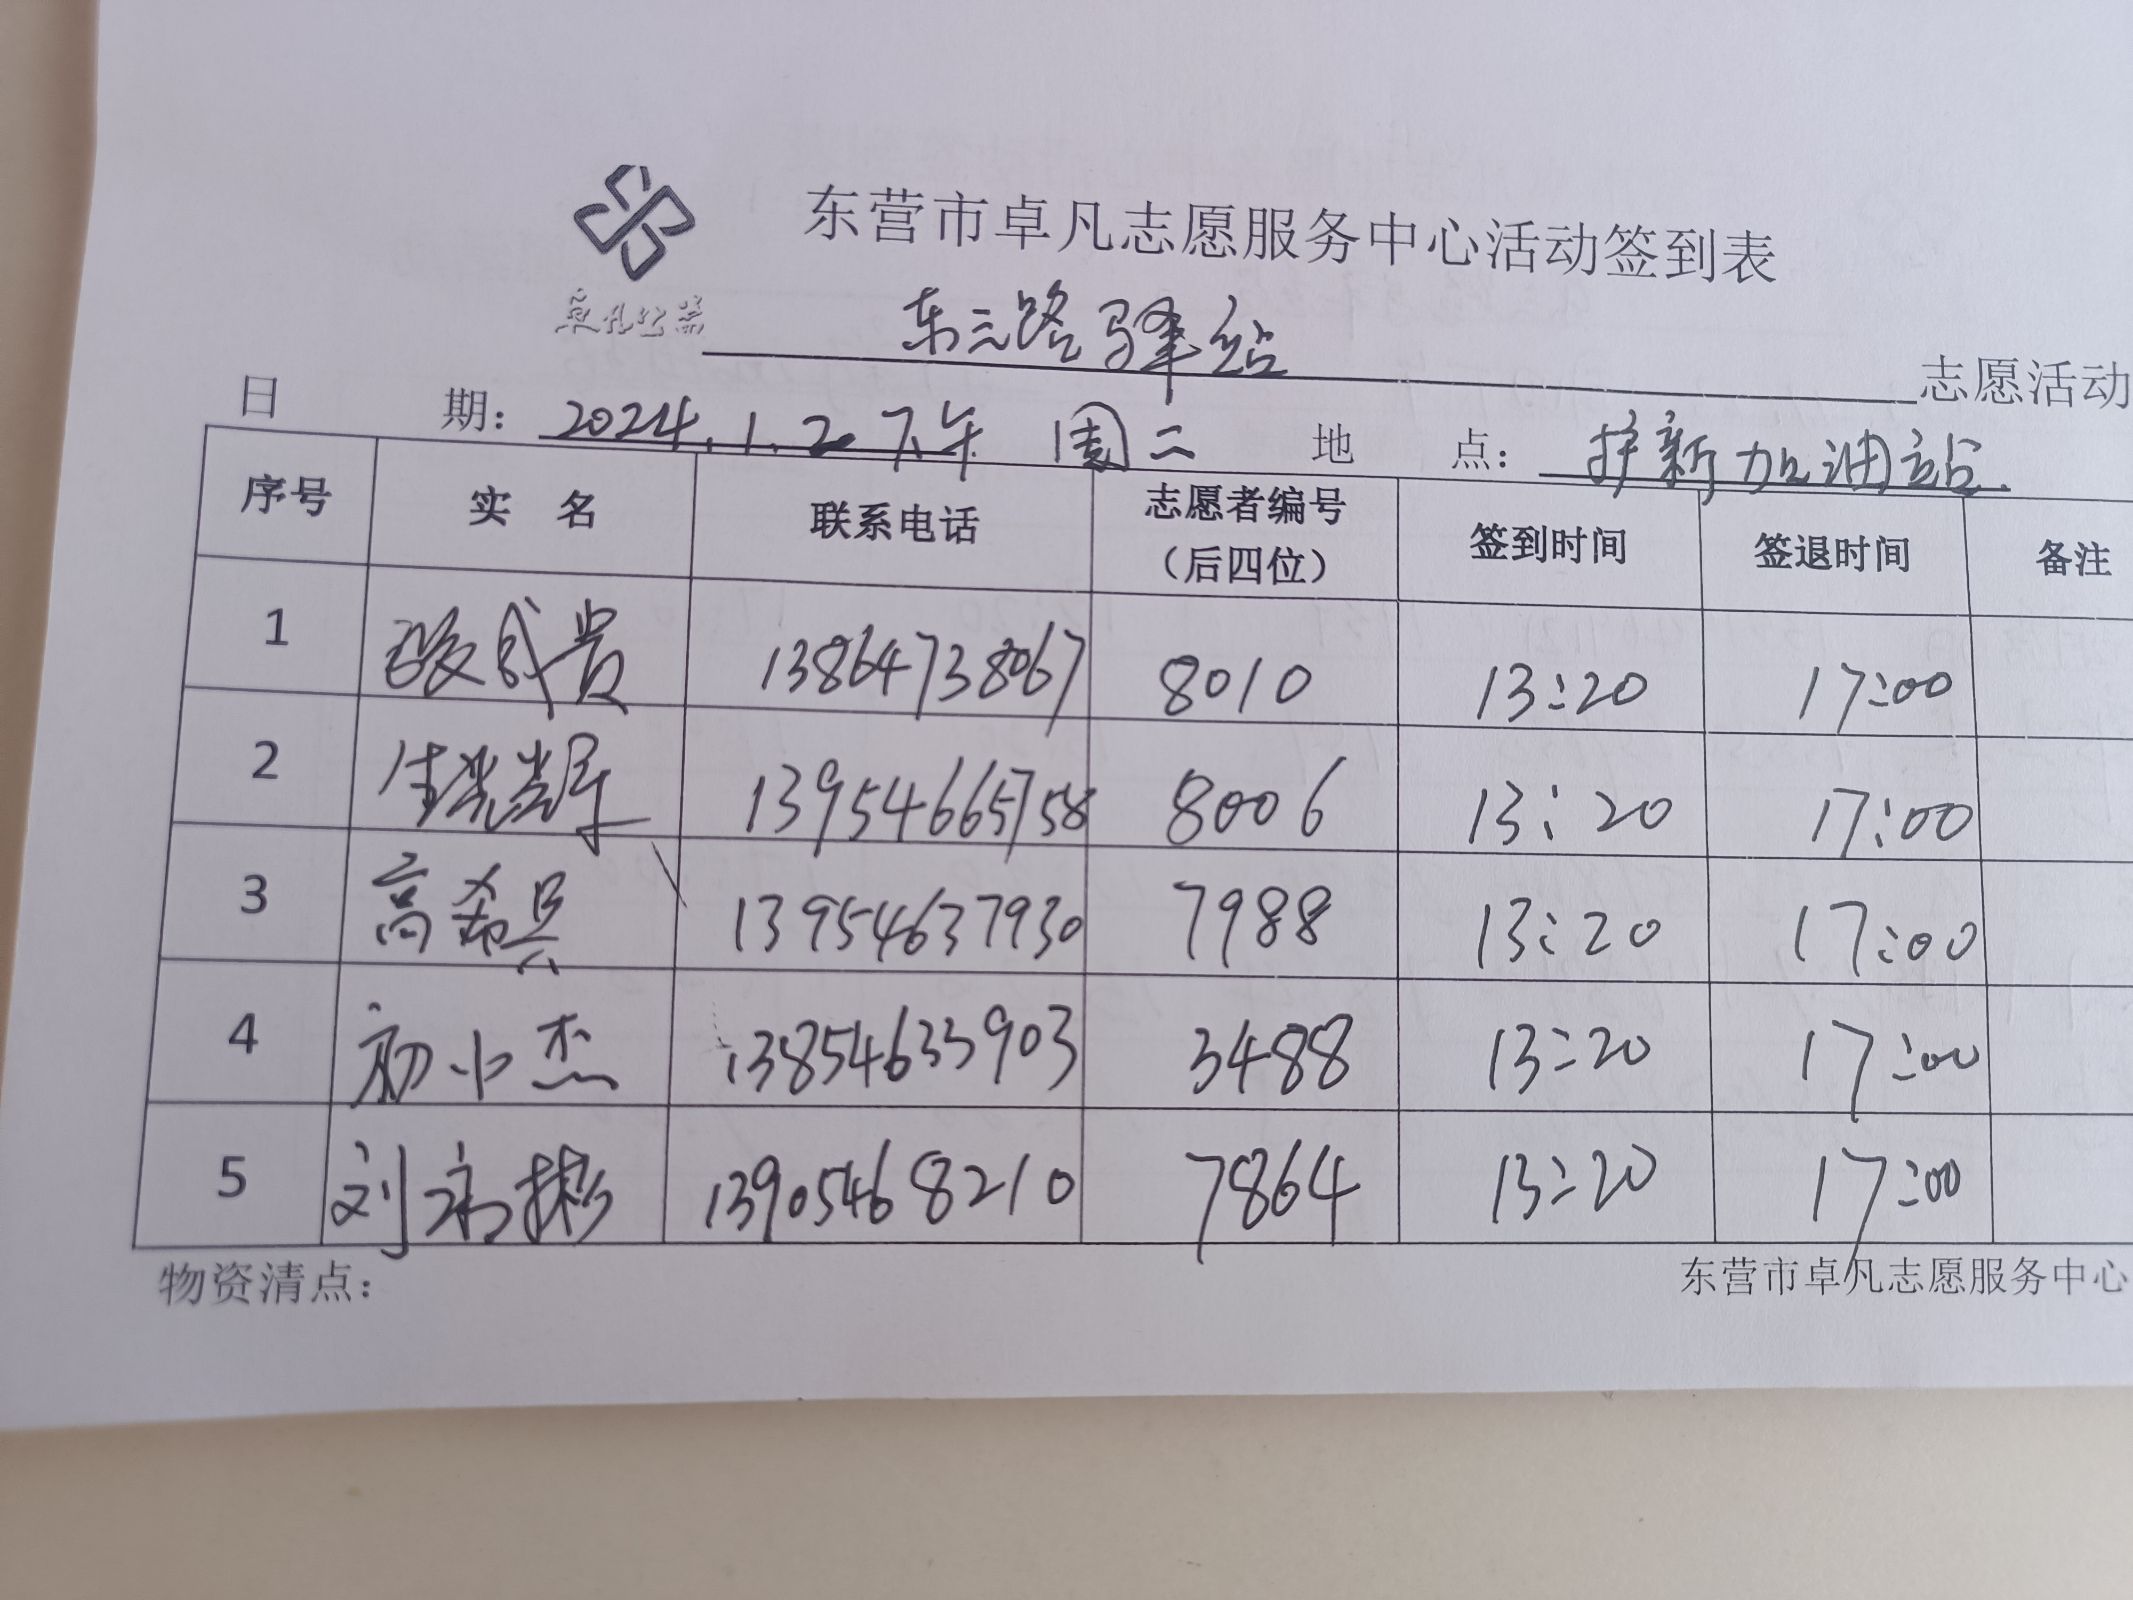 东营市卓凡志愿服务中心活动签到表
卓凡公益
东三路驿站 志愿活动
日 期：2024.1.2下午 周二 地 点：护新加油站.
序号 实 名 联系电话 志愿者编号（后四位） 签到时间 签退时间 备注
1 成贵 13864738067 8010 13:20 17:00
2 13954665758 8006 13:20 17:00
3 高希兵 13954637930 7988 13:20 17:00
4 初小杰 13854633903 3488 13:20 17:00
5 刘 彬 13905468210 7864 13:20 17:00
物资清点： 东营市卓凡志愿服务中心